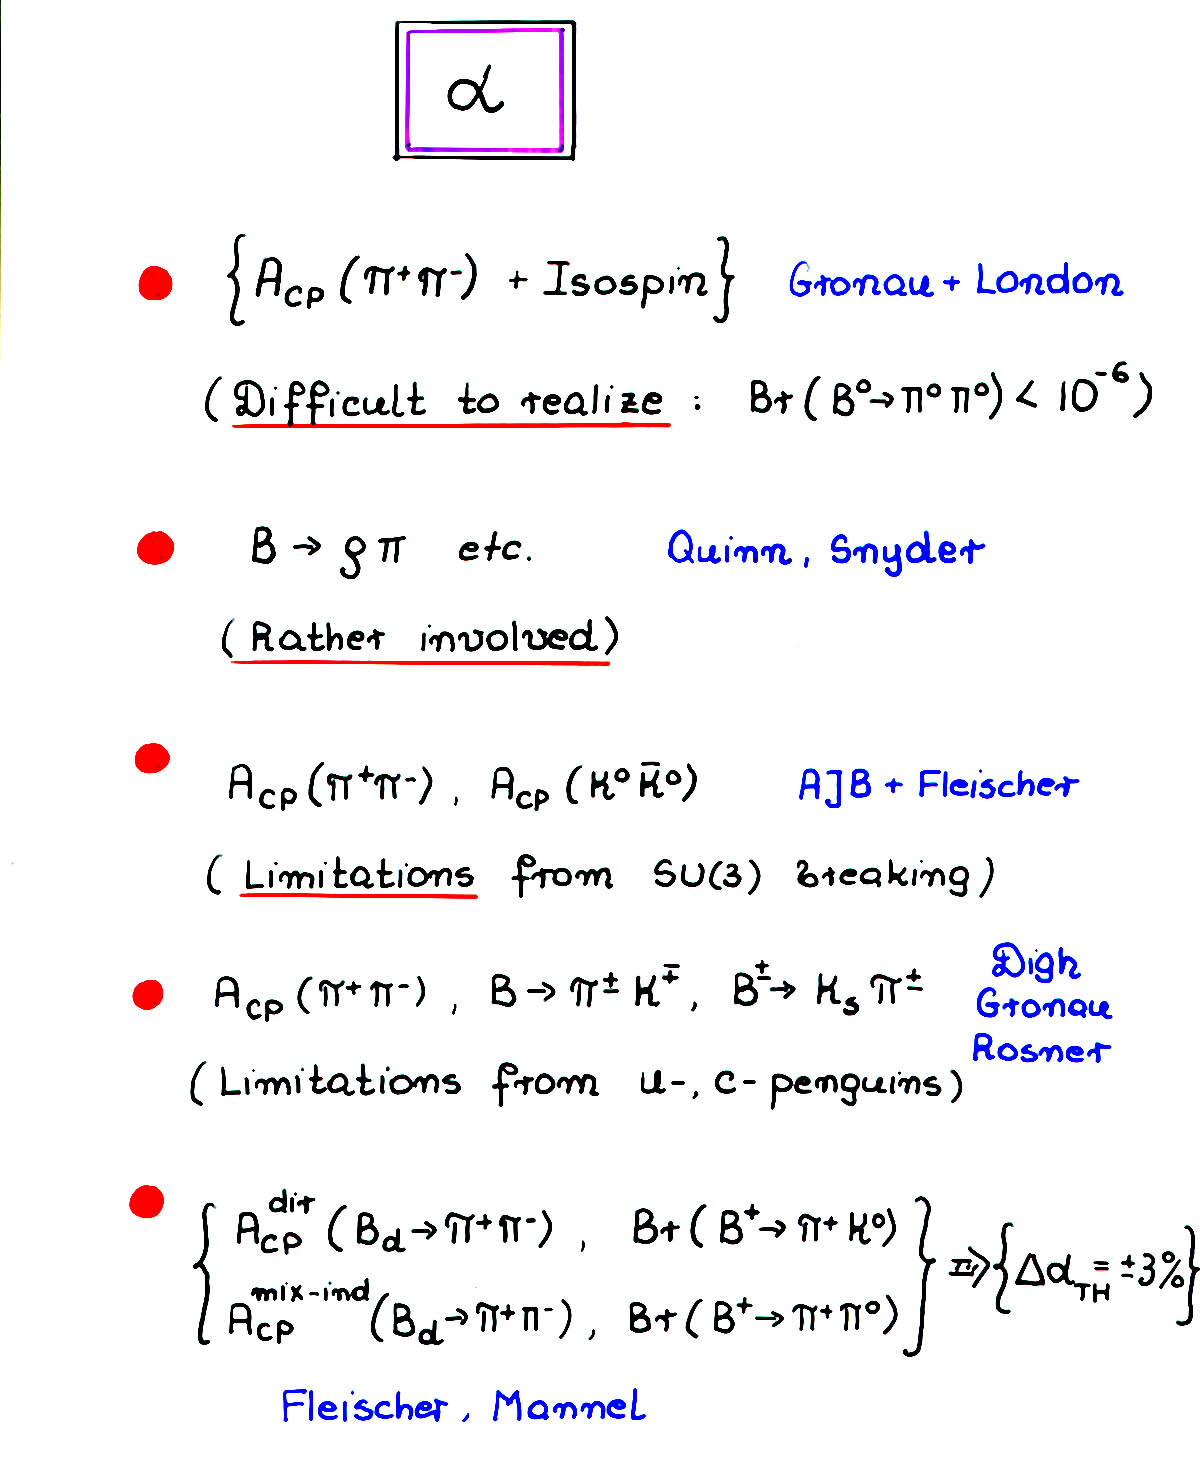 α
{A_CP (π⁺π⁻) + Isospin} Gronau + London
(Difficult to realize : Br(B⁰→π⁰π⁰) < 10⁻⁶)
B → ρπ etc. Quinn, Snyder
(Rather involved)
A_CP(π⁺π⁻), A_CP(K⁰K̄⁰) AJB + Fleischer
(Limitations from SU(3) breaking)
A_CP(π⁺π⁻), B→π^±K^∓, B^±→K_sπ^± Digh
Gronau
Rosner
(Limitations from u-, c-penguins)
{A_CP^dir (B_d→π⁺π⁻), Br(B⁺→π⁺K⁰)
A_CP^mix-ind (B_d→π⁺π⁻), Br(B⁺→π⁺π⁰)} ⇒ {Δα_TH = ±3%}
Fleischer, Mannel